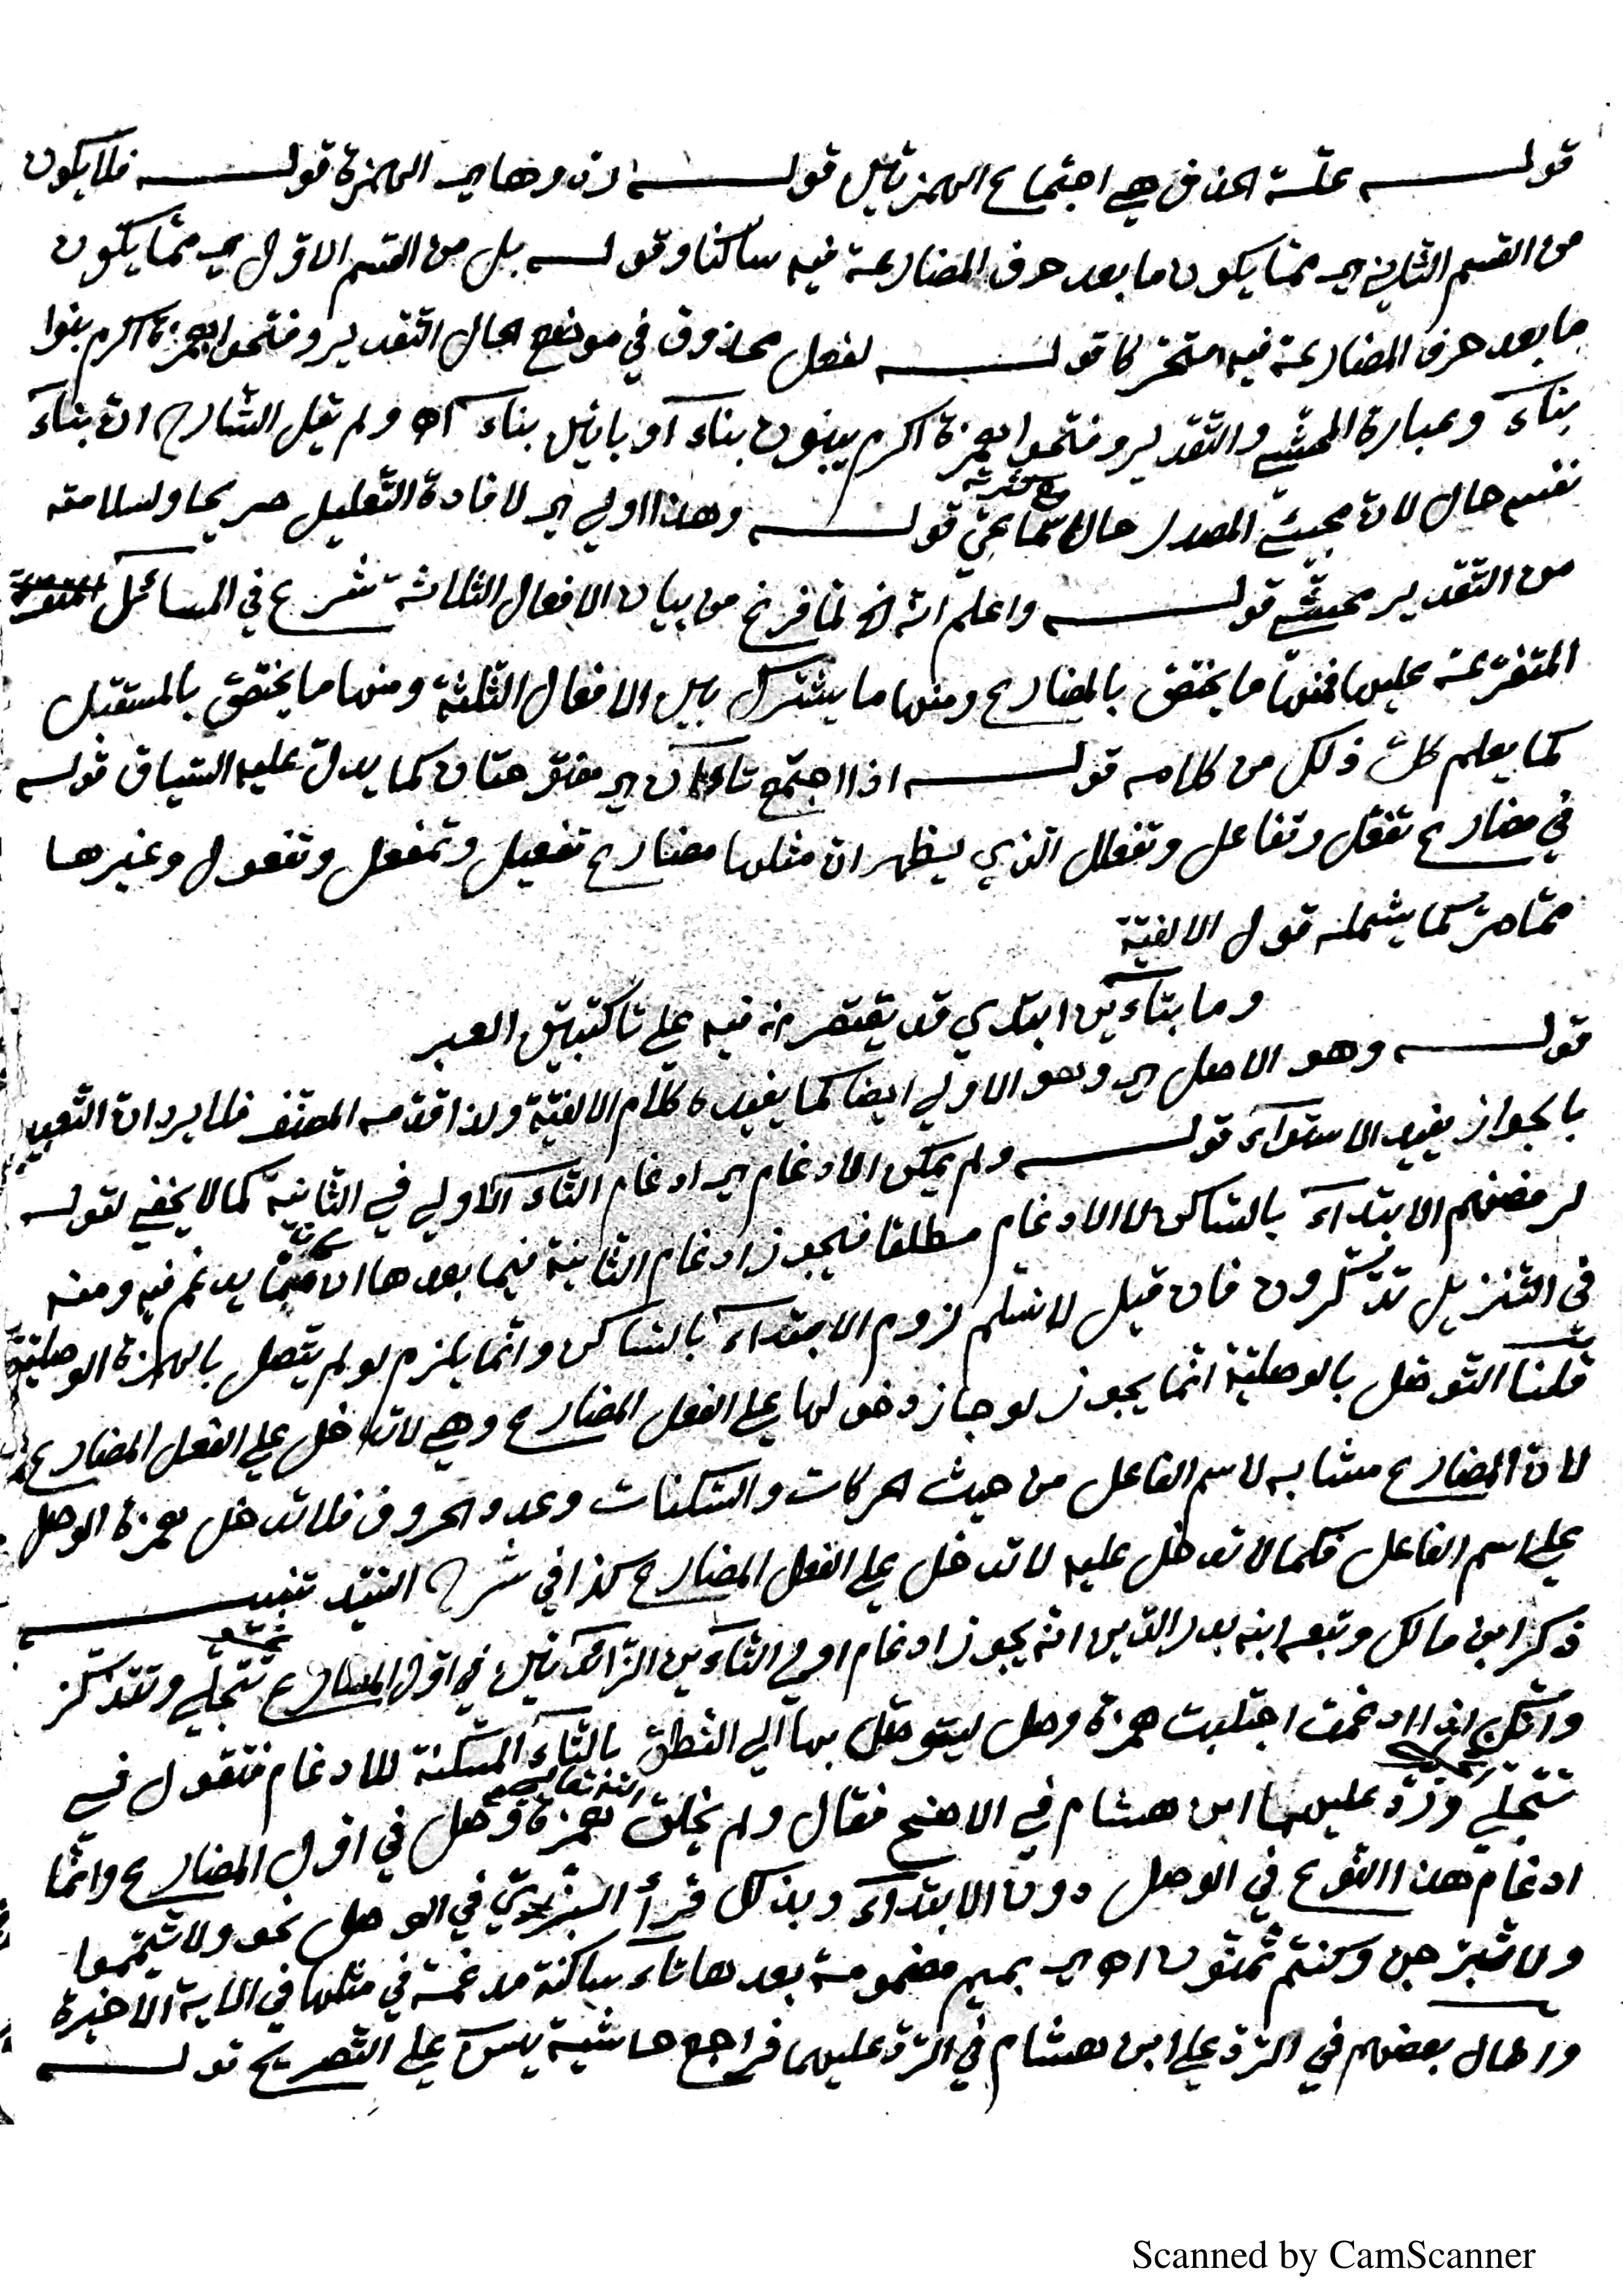 قوله علة الحذف هي اجتماع الهمزتين قوله ردوها اي الهمزة قوله فلا يكون
من القسم الثاني اي مما يكون ما بعد حرف المضارعة فيه ساكنا وقوله بل من القسم الاول اي مما يكون
ما بعد حرف المضارعة فيه متحركا قوله لفعل محذوف في موضع الحال التقدير وفتحوا همزة اكرم بنوا
بناء وعبارة المحشي والتقدير وفتحوا همزة اكرم يبنون بناء او بانين بناء اه ولم يقل الشارح ان بناء
نفسه حال لان مجيئ المصدر حالا سماعي مع كثرته قوله وهذا اولي اي لافادة التعليل صريحا وسلامته
من التقدير محشي قوله واعلم انه الخ لما فرغ من بيان الافعال الثلاثة شرع في المسائل
المتفرعة عليها فمنها ما يختص بالمضارع ومنها ما يشترك بين الافعال الثلثة ومنها ما يختص بالمستقبل
كما يعلم كل ذلك من كلامه قوله اذا اجتمع تاءان اي مفتوحتان كما يدل عليه السياق قوله
في مضارع تفعّل وتفاعل وتفعلل الذي يظهر ان مثلها مضارع تفعيل وتمفعل وتفعول وغيرها
مما مر كما يشمله قول الالفية
وما بتاءين ابتدي قد يقتصر فيه علي تا كتبين العبر
قوله وهو الاصل اي وهو الاولي ايضا كما يفيده كلام الالفية ولذا قدمه المصنف فلا يرد ان التعبير
بالجواز يفيد الاستواء قوله ولم يمكن الادغام اي ادغام التاء الاولي في الثانية كما لا يخفي لقوله
لرفضهم الابتداء بالساكن لا الادغام مطلقا فيجوز ادغام الثانية فيما بعدها ان كان مما يدغم فيه ومنه
في التنزيل تذّكرون فان قيل لا نسلم لزوم الابتداء بالساكن وانما يلزم لو لم يتصل بالهمزة الوصلية
قلنا التوصل بالوصلية انما يجوز لو جاز دخولها علي الفعل المضارع وهي لا تدخل علي الفعل المضارع
لان المضارع مشابه لاسم الفاعل من حيث الحركات والسكنات وعدد الحروف فلا تدخل همزة الوصل
علي اسم الفاعل فكما لا تدخل عليه لا تدخل علي الفعل المضارع كذا في شرح السيد تنبيه
ذكر ابن مالك وتبعه ابنه بدر الدين انه يجوز ادغام اولي التاءين الزائدتين في اول المضارع نحو تتجلي وتتذكر
وانك اذا ادغمت اجتلبت همزة وصل ليتوصل بها الي النطق بالتاء المسكنة للادغام فتقول في
تتجلي اتجلي وردّ عليهما ابن هشام في الاوضح فقال ولم يخلق الله تعالي همزة وصل في اول المضارع وانما
ادغام هذا النوع في الوصل دون الابتداء وبذلك قرأ البزي في الوصل نحو ولا تيمموا
ولا تبرجن وكنتم تمنون اه اي بميم مضمومة بعدها تاء ساكنة مدغمة في مثلها في الاية الاخيرة
واطال بعضهم في الرد علي ابن هشام في الرد عليهما فراجع حاشية يس علي التصريح قوله
Scanned by CamScanner